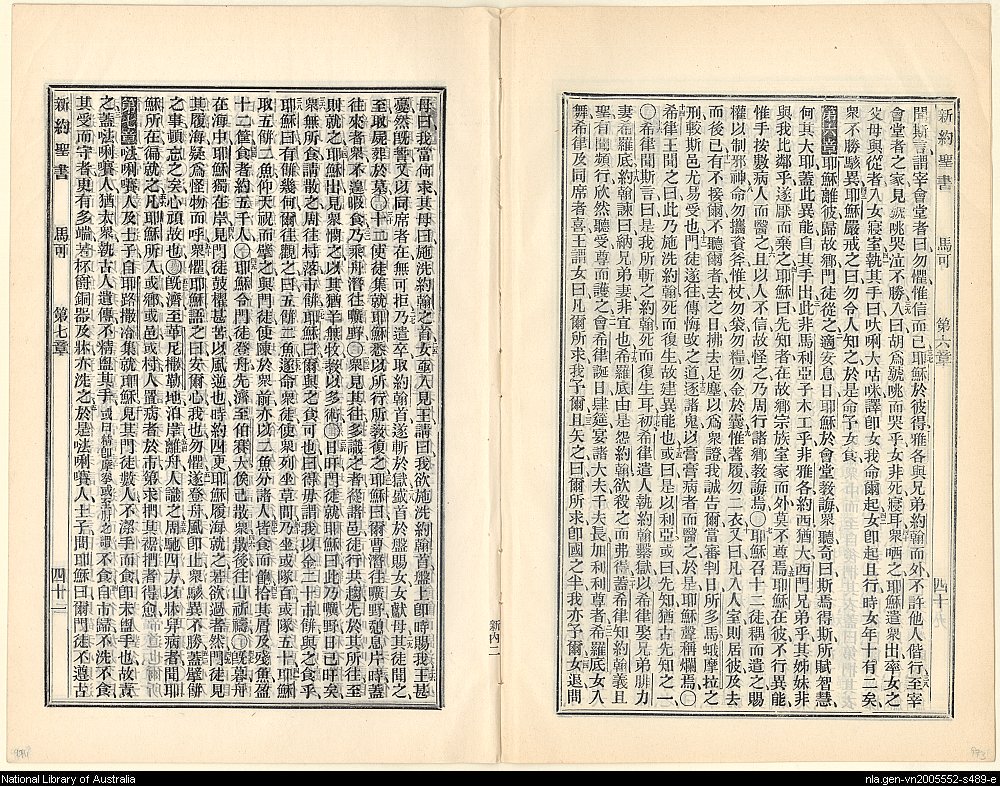 新約聖書 馬可 第六章
聞斯言謂宰會堂者曰勿懼惟信而已耶穌於彼得雅各與兄弟約翰而外不許他人偕行至宰
會堂者之家見號咷哭泣不勝入曰胡爲號咷而哭乎女非死寢耳衆哂之耶穌遣衆出率女之
父母與從者入女寢室執其手曰吠唎大咕咪譯卽女我命爾起女卽起且行時女年十有二矣
衆不勝駭異耶穌嚴戒之曰勿令人知之於是命予女食
第六章耶穌離彼歸故鄉門徒從之適安息日耶穌於會堂敎誨衆聽奇曰斯焉得斯所賦智慧
何其大耶蓋此異能自其手出此非馬利亞子木工乎非雅各約西猶大西門兄弟乎其姊妹非
與我比鄰乎遂厭而棄之耶穌曰先知者在故鄉宗族室家而外莫不尊焉耶穌在彼不行異能
惟手按數病人而醫之且以人不信故怪之乃周行諸鄉敎誨焉○耶穌召十二徒耦而遣之賜
權以制邪神命勿攜資斧惟杖勿袋勿糧勿金於囊惟著履勿二衣又曰凡入人室則居彼及去
而後已有不接爾不聽爾者去之日拂去足塵以爲衆證我誠告爾當審判日所多馬蛾摩拉之
刑較斯邑尤易受也門徒遂往傳悔改之道逐諸鬼以膏膏病者而醫之於是耶穌聲稱爛焉○
希律王聞之曰此乃施洗約翰死而復生故建異能也或曰是以利亞或曰先知猶古先知之一
○希律聞斯言曰是我所斬之約翰死而復生耳初希律遣人執約翰繫獄以希律娶兄弟腓力
妻希羅底約翰諫曰納兄弟妻非宜也希羅底由是怨約翰欲殺之而弗得蓋希律知約翰義且
聖有聞頻行欣然聽受尊而護之會希律誕日肆筵宴諸大夫千夫長加利利尊者希羅底女入
舞希律及同席者喜王謂女曰凡爾所求我予爾且矢之曰爾所求卽國之半我亦予爾女退問
新內二
母曰我當何求其母曰施洗約翰之首女亟入見王請曰我欲施洗約翰首盤上卽時賜我王甚
憂然旣誓又以同席者在無可拒乃遣卒取約翰首遂斬於獄盛首於盤賜女女獻母其徒聞之
至取屍葬於墓○十二使徒集就耶穌悉以所行所敎復之耶穌曰爾曹潛往曠野憩息片時蓋
往來者衆不遑暇食乃乘舟潛往曠野○衆見其往多識之者從諸邑徒行共趨先於其所往至
則就之耶穌出見衆憫之以其猶羊無牧敎以多術○日旰門徒就耶穌曰此乃曠野日已旰矣
衆無所食請散之周往村落市餅耶穌曰爾與之食可也曰得毋謂我以金二十市餅與之食乎
耶穌曰有餅幾何爾往觀之曰五餅二魚遂命衆徒使衆列坐草間乃坐或隊百或隊五十耶穌
取五餅二魚仰天祝而擘之與門徒使陳於衆前亦以二魚分諸人皆食而飽拾其屑及殘魚盈
十二筐食者約五千人○耶穌令門徒登舟先濟至伯賽大俟己散衆散後往山祈禱○旣暮舟
在海中耶穌獨在岸見門徒鼓櫂甚苦以風逆也時約四更耶穌履海就之若欲過者然門徒見
其履海疑爲怪物而呼衆懼耶穌語之曰安爾心我也勿懼遂登舟風卽止衆駭異不勝蓋擘餅
之事頓忘之矣心頑故也○旣濟至革尼撒勒地泊岸離舟人識之周馳四方以牀舁病者聞耶
穌所在徧就之凡耶穌所入或鄉或邑或村人置病者於市第求捫其裾捫者得愈
第七章㗲唎賽人及士子自耶路撒冷集就耶穌見其門徒數人不潔手而食卽未盥手也故責
之蓋㗲唎賽人猶太衆執古人遺傳不精盥其手不食自市歸不洗不食
其受而守者更有多端若杯爵銅器及牀亦洗之於是㗲唎賽人士子問耶穌曰爾門徒不遵古
新約聖書 馬可 第七章
National Library of Australia
nla.gen-vn2005552-s489-e